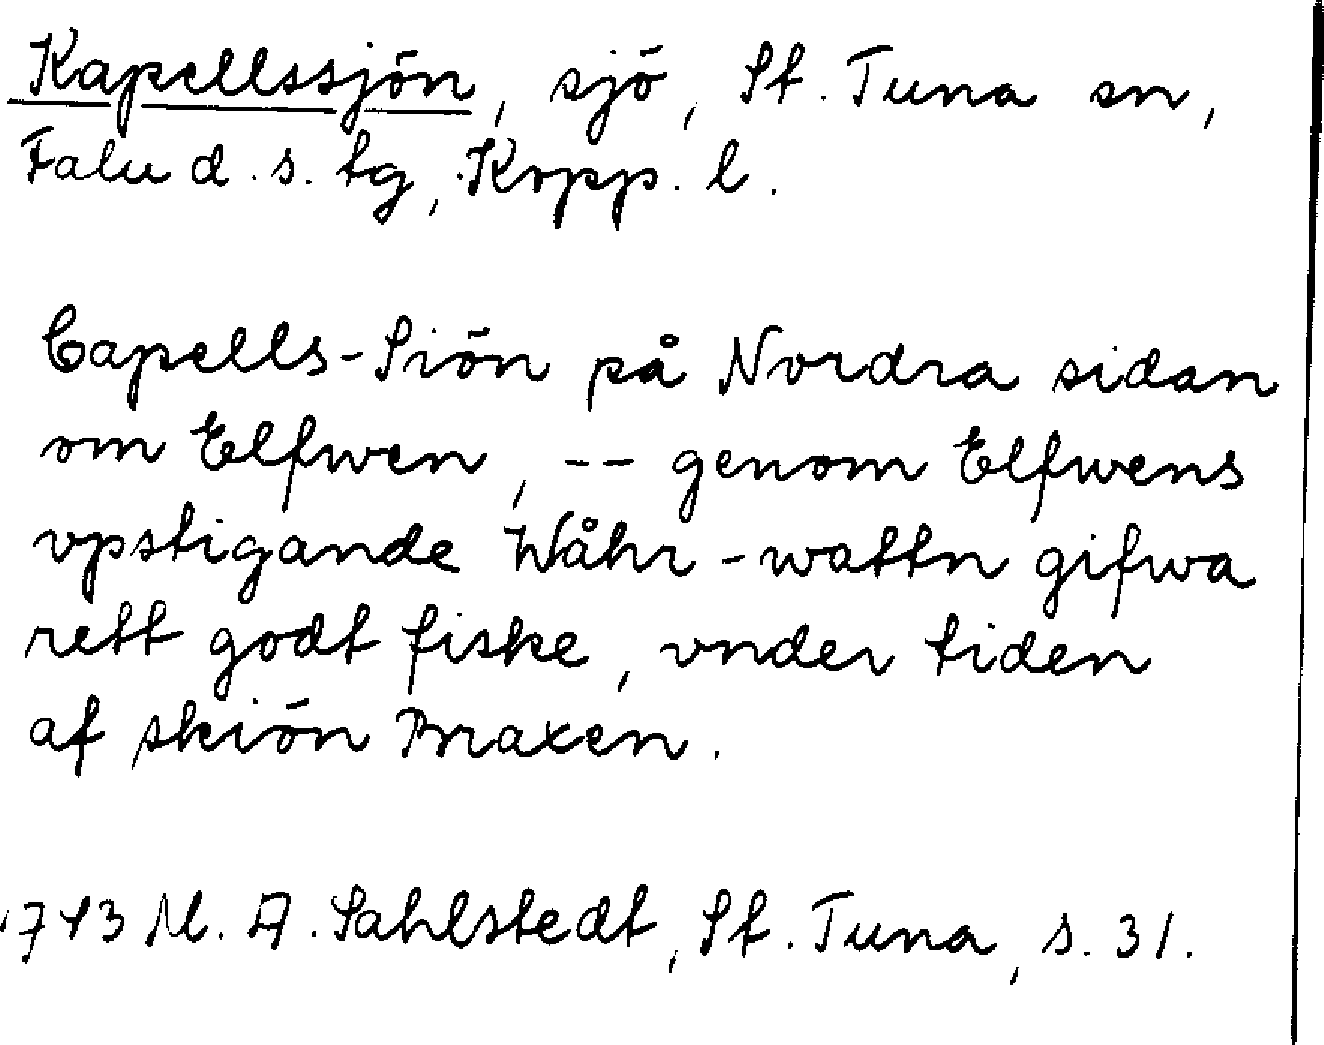 Kapellssjön, sjö, St. Tuna sn,
Falu d.s. tg, Kopp. l.
Capells-Siön på Nordra sidan
om Elfwen, -- genom Elfwens
vpstigande Wåhr-wattn gifwa
rett godt fiske, vnder tiden
af skiön Braxen.
1743 M. A. Sahlstedt, St. Tuna, s. 31.